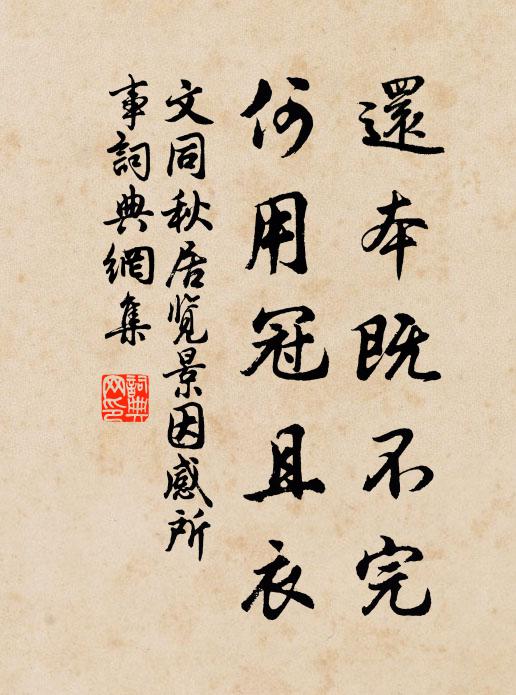 還本既不完
何用冠且衣
文同秋居览景因感所
事詞典網集
詞典网印